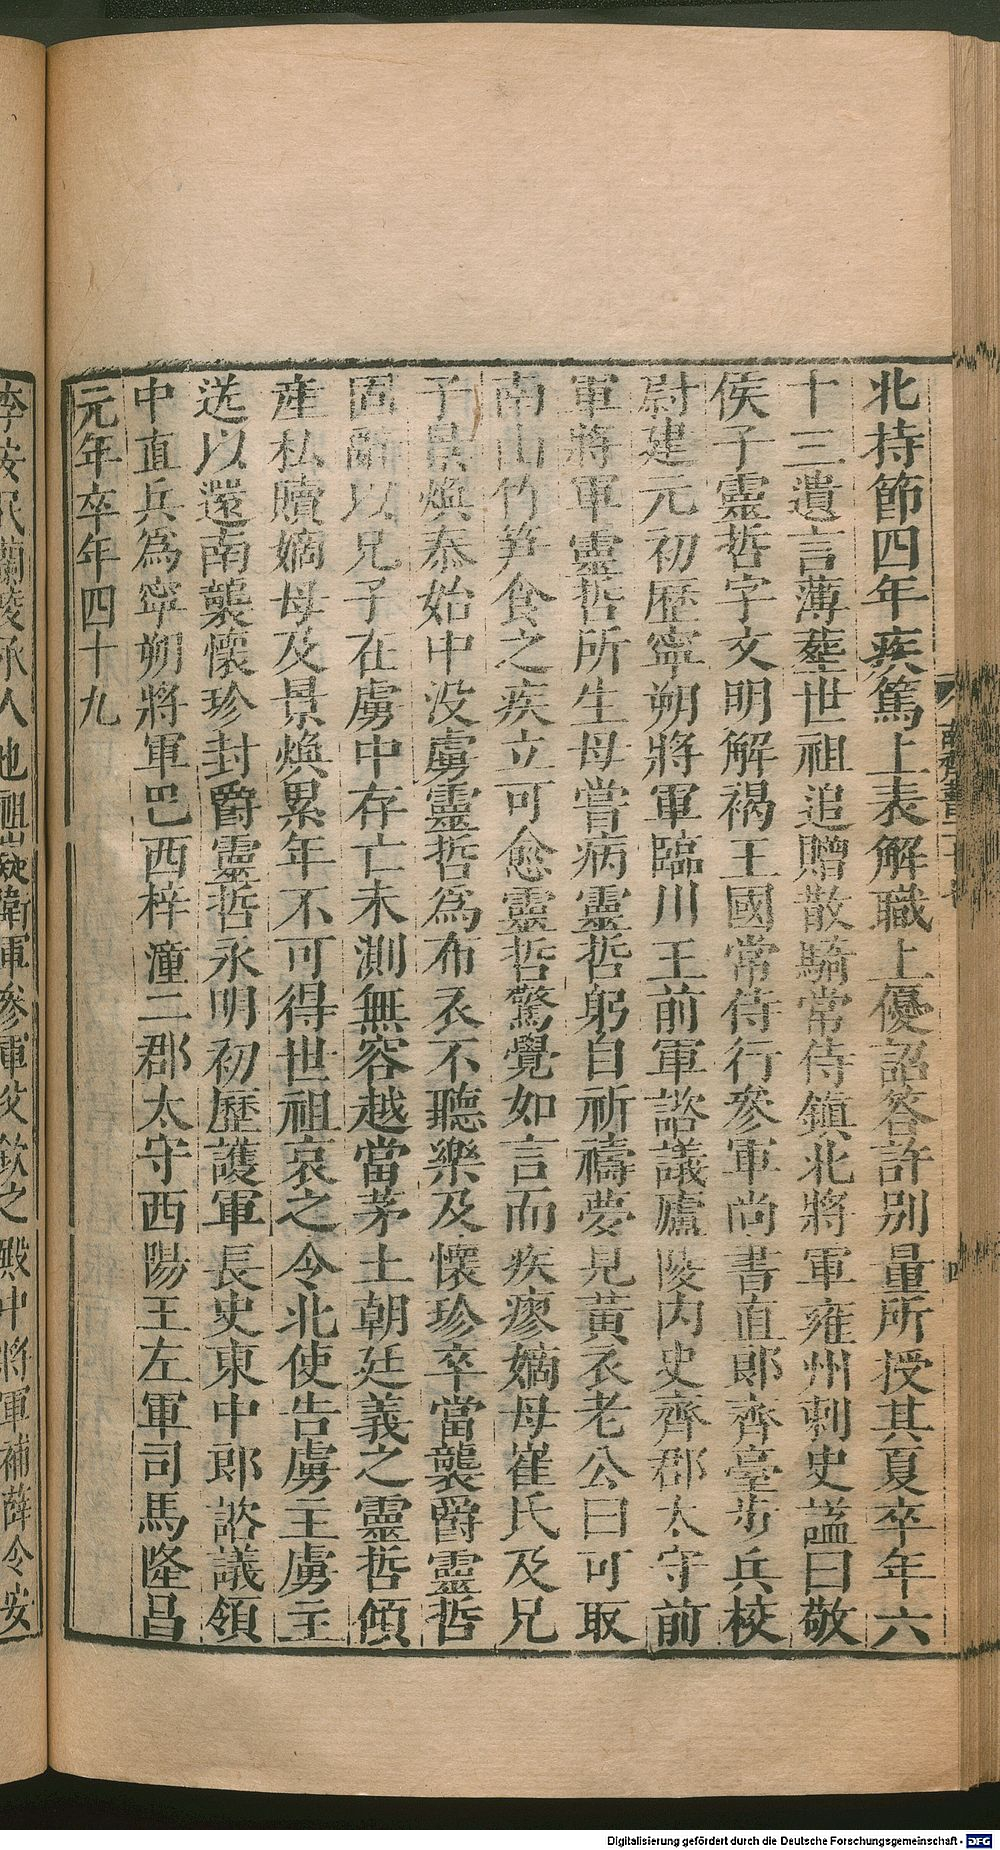 北持節四年疾篤上表解職上優詔答許別量所授其夏卒年六
十三遺言薄葬世祖追贈散騎常侍鎮北將軍雍州刺史諡曰敬
侯子靈哲字文明解褐王國常侍行參軍尚書直郎齊臺步兵校
尉建元初歷寧朔將軍臨川王前軍諮議廬陵內史齊郡太守前
軍將軍靈哲所生母嘗病靈哲躬自祈禱夢見黃衣老公曰可取
南山竹笋食之疾立可愈靈哲驚覺如言而疾瘳嫡母崔氏及兄
子景煥泰始中没虜靈哲爲布衣不聽樂及懷珍卒當襲爵靈哲
固辭以兄子在虜中存亡未測無容越當茅土朝廷義之靈哲傾
產私贖嫡母及景煥累年不可得世祖哀之令北使告虜主虜主
送以還南襲懷珍封爵靈哲永明初歷護軍長史東中郎諮議領
中直兵爲寧朔將軍巴西梓潼二郡太守西陽王左軍司馬隆昌
元年卒年四十九
李安民蘭陵承人也祖嶷衛軍參軍父欽之殿中將軍補薛令安
Digitalisierung gefördert durch die Deutsche Forschungsgemeinschaft - DFG